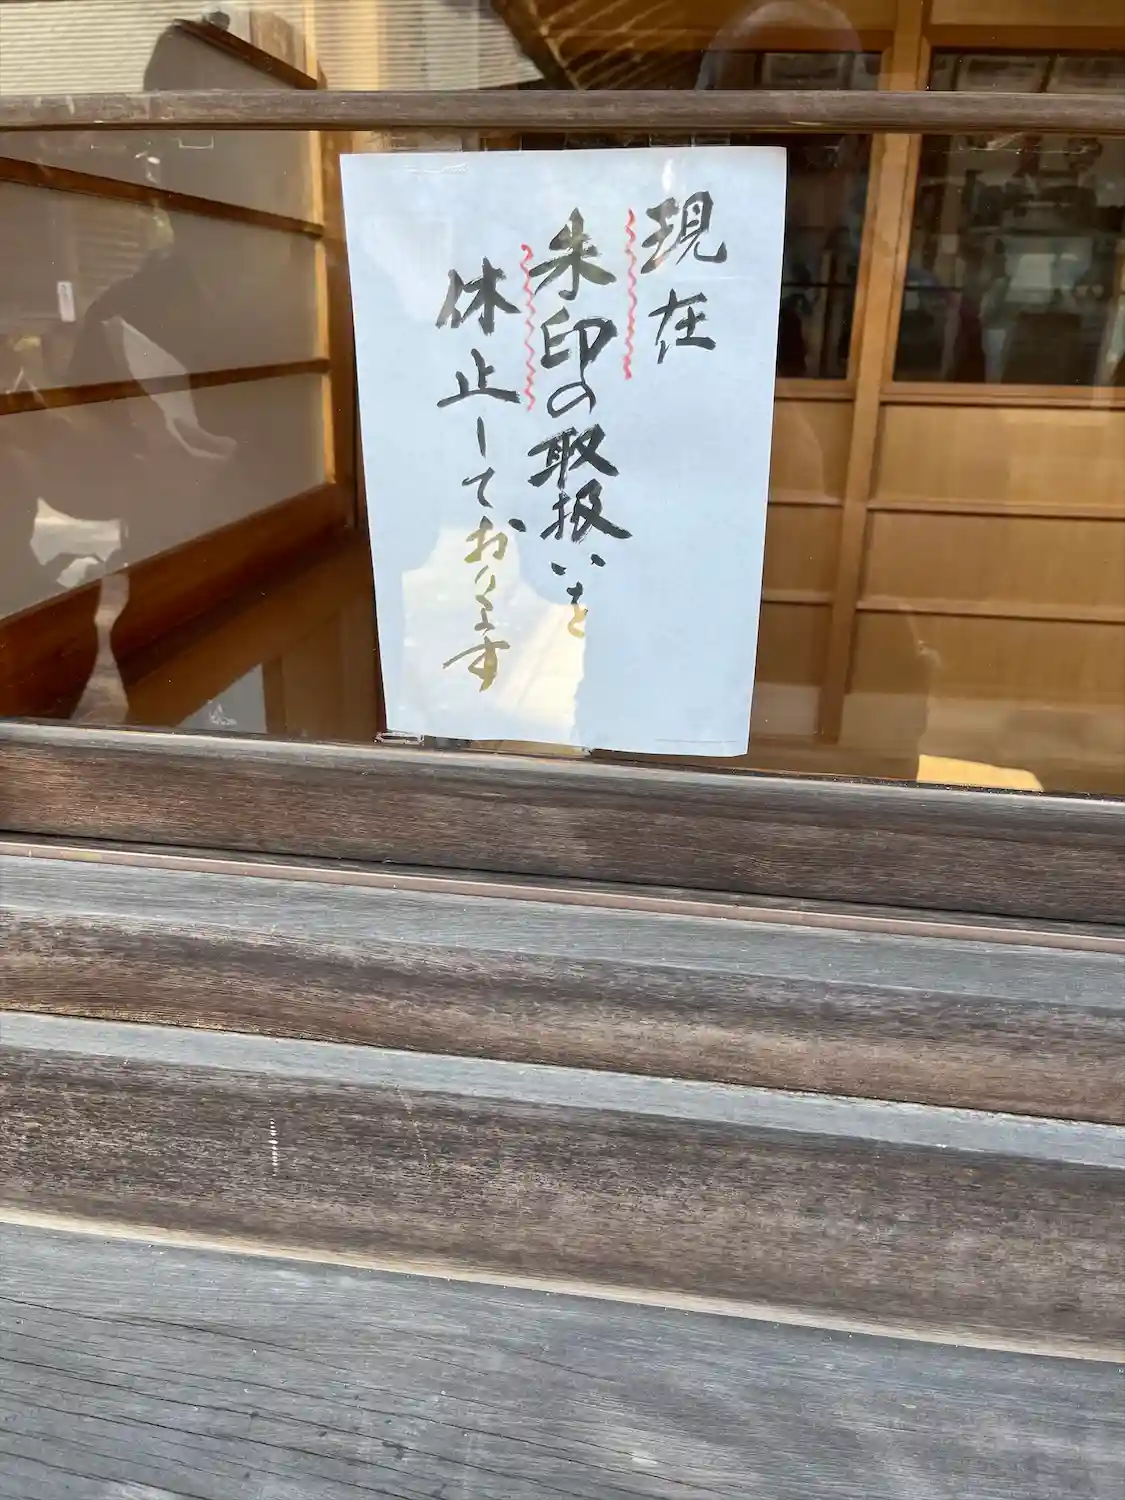 現在
朱印の取扱いを
休止しております